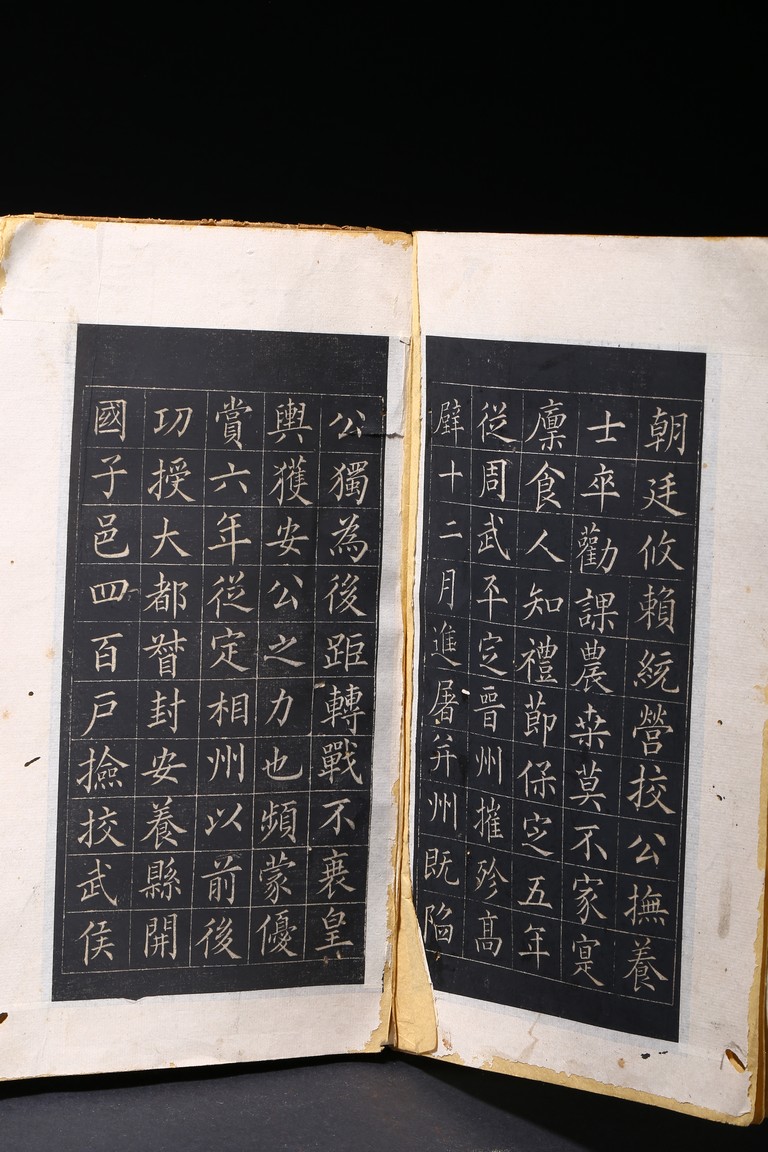 朝廷攸賴統營挍公撫養
士卒勸課農桒莫不家寔
廩食人知禮節保定五年
從周武平定晉州摧殄高
壁十二月進屠并州既陷
公獨為後距轉戰不衰皇
輿獲安公之力也頻蒙優
賞六年從定相州以前後
功授大都督封安養縣開
國子邑四百戶撿挍武侯